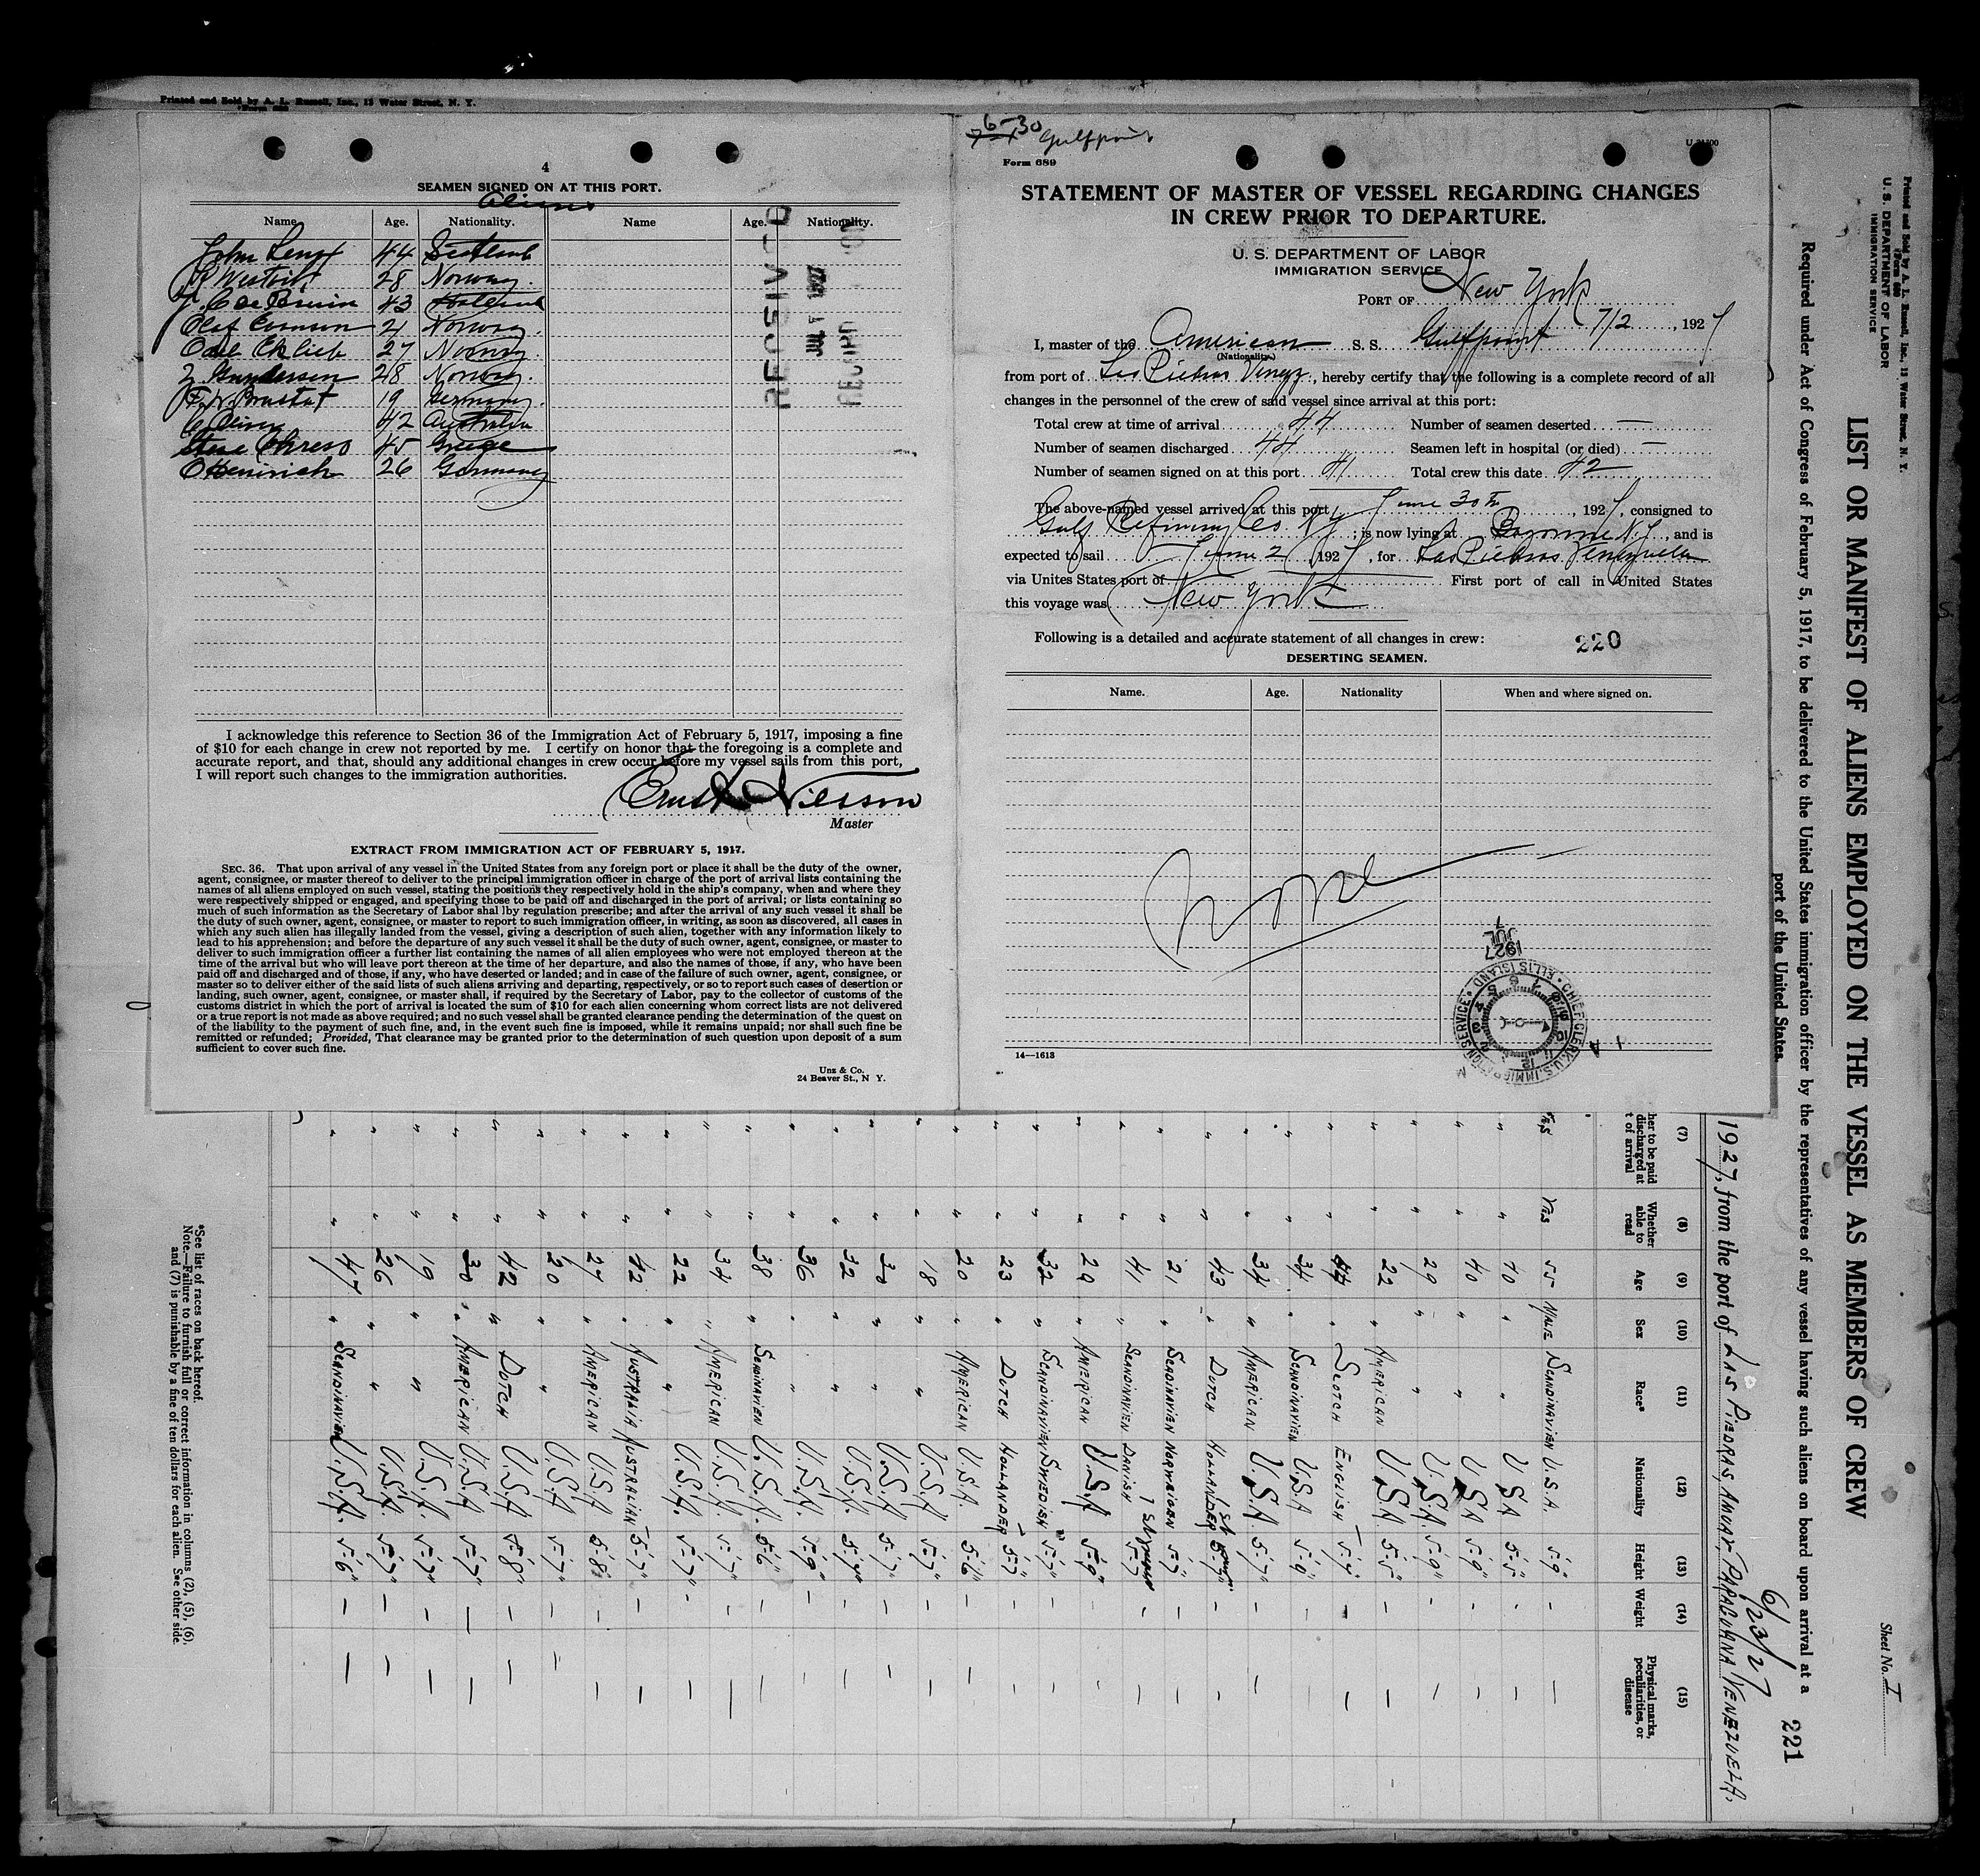 Printed and Sold by A. L. Russell, Inc., 13 Water Street, N. Y.
4
SEAMEN SIGNED ON AT THIS PORT.
Aliens
Name Age. Nationality. Name Age. Nationality.
John 44 Scotland
28 Norway
43 Holland
Olaf 21 Norway.
27 Norway.
Gundersen 28 Norway.
19 Germany.
42 Australia
45 Greece
O Heinrich 26 Germany
RECEIVED
I acknowledge this reference to Section 36 of the Immigration Act of February 5, 1917, imposing a fine
of $10 for each change in crew not reported by me. I certify on honor that the foregoing is a complete and
accurate report, and that, should any additional changes in crew occur before my vessel sails from this port,
I will report such changes to the immigration authorities.
Master
EXTRACT FROM IMMIGRATION ACT OF FEBRUARY 5, 1917.
SEC. 36. That upon arrival of any vessel in the United States from any foreign port or place it shall be the duty of the owner,
agent, consignee, or master thereof to deliver to the principal immigration officer in charge of the port of arrival lists containing the
names of all aliens employed on such vessel, stating the positions they respectively hold in the ship's company, when and where they
were respectively shipped or engaged, and specifying those to be paid off and discharged in the port of arrival; or lists containing so
much of such information as the Secretary of Labor shal lby regulation prescribe; and after the arrival of any such vessel it shall be
the duty of such owner, agent, consignee, or master to report to such immigration officer, in writing, as soon as discovered, all cases in
which any such alien has illegally landed from the vessel, giving a description of such alien, together with any information likely to
lead to his apprehension; and before the departure of any such vessel it shall be the duty of such owner, agent, consignee, or master to
deliver to such immigration officer a further list containing the names of all alien employees who were not employed thereon at the
time of the arrival but who will leave port thereon at the time of her departure, and also the names of those, if any, who have been
paid off and discharged and of those, if any, who have deserted or landed; and in case of the failure of such owner, agent, consignee, or
master so to deliver either of the said lists of such aliens arriving and departing, respectively, or so to report such cases of desertion or
landing, such owner, agent, consignee, or master shall, if required by the Secretary of Labor, pay to the collector of customs of the
customs district in which the port of arrival is located the sum of $10 for each alien concerning whom correct lists are not delivered
or a true report is not made as above required; and no such vessel shall be granted clearance pending the determination of the quest on
of the liability to the payment of such fine, and, in the event such fine is imposed, while it remains unpaid; nor shall such fine be
remitted or refunded; Provided, That clearance may be granted prior to the determination of such question upon deposit of a sum
sufficient to cover such fine.
Unz & Co.
24 Beaver St., N Y.
6-30 Gulfpoint
Form 689
STATEMENT OF MASTER OF VESSEL REGARDING CHANGES
IN CREW PRIOR TO DEPARTURE.
U. S. DEPARTMENT OF LABOR
IMMIGRATION SERVICE
PORT OF New York
7/2, 1927
I, master of the American S. S. Gulfpoint
(Nationality.)
from port of Las Piedras, hereby certify that the following is a complete record of all
changes in the personnel of the crew of said vessel since arrival at this port:
Total crew at time of arrival 44 Number of seamen deserted —
Number of seamen discharged 44 Seamen left in hospital (or died) —
Number of seamen signed on at this port 41 Total crew this date 42
The above-named vessel arrived at this port June 30th, 1927, consigned to
Gulf Refining Co. NY; is now lying at Bayonne N.J., and is
expected to sail June 2 1927, for Las Piedras Venezuela
via Unites States port of First port of call in United States
this voyage was New York
Following is a detailed and accurate statement of all changes in crew:
220
DESERTING SEAMEN.
Name. Age. Nationality When and where signed on.
None
JUL 1927
CHIEF CLERK, U.S. IMMIGRATION SERVICE ELLIS ISLAND
14—1613
Printed and Sold by A. L. Russell, Inc., 13 Water Street, N. Y.
Form 689
U. S. DEPARTMENT OF LABOR
IMMIGRATION SERVICE
Sheet No. I
LIST OR MANIFEST OF ALIENS EMPLOYED ON THE VESSEL AS MEMBERS OF CREW
Required under Act of Congress of February 5, 1917, to be delivered to the United States immigration officer by the representatives of any vessel having such aliens on board upon arrival at a
port of the United States.
221
6/23/27
1927, from the port of LAS PIEDRAS, AMUAY, PARAGUANA VENEZUELA.
(7) (8) (9) (10) (11) (12) (13) (14) (15)
her to be paid discharged at t of arrival Whether able to read Age Sex Race* Nationality Height Weight Physical marks, peculiarities, or disease
Yes Yes 55 MALE SCANDINAVIEN U.S.A. 5-9" —
" " 40 " " U.S.A 5-5" —
" " 40 " " U.S.A 5-9" —
" " 29 " " U.S.A. 5-9" —
" " 22 " AMERICAN U.S.A. 5-5" —
" " 44 " SCOTCH ENGLISH 5-4" —
" " 34 " SCANDINAVIEN U.S.A 5-9" —
" " 34 " AMERICAN U.S.A. 5-7" —
" " 43 " DUTCH HOLLANDER 5-7" —
" " 21 " SCANDINAVIEN NORWEGION 5-7" —
" " 41 " SCANDINAVIEN DANISH 5-7" —
" " 29 " AMERICAN U.S.A 5-9" —
" " 32 " SCANDINAVIEN SWEDISH 5-7" —
" " 23 " DUTCH HOLLANDER 5-7" —
" " 20 " AMERICAN U.S.A. 5-6" —
" " 18 " " U.S.A 5-7" —
" " 30 " " U.S.A 5-7" —
" " 32 " " U.S.A. 5-7" —
" " 36 " " U.S.A. 5-9" —
" " 38 " SCANDINAVIEN U.S.A. 5-6" —
" " 34 " AMERICAN U.S.A. 5-7" —
" " 22 " " U.S.A. 5-7" —
" " 42 " AUSTRALIA AUSTRALIAN 5-7" —
" " 27 " AMERICAN U.S.A 5-8" —
" " 20 " " U.S.A 5-7" —
" " 42 " DUTCH U.S.A 5-8" —
" " 30 " AMERICAN U.S.A 5-7" —
" " 19 " " U.S.A. 5-7" —
" " 26 " " U.S.A. 5-7" —
" " 47 " SCANDINAVIEN U.S.A. 5-6" —
*See list of races on back hereof.
Note.—Failure to furnish full or correct information in columns (2), (5), (6),
and (7) is punishable by a fine of ten dollars for each alien. See other side.